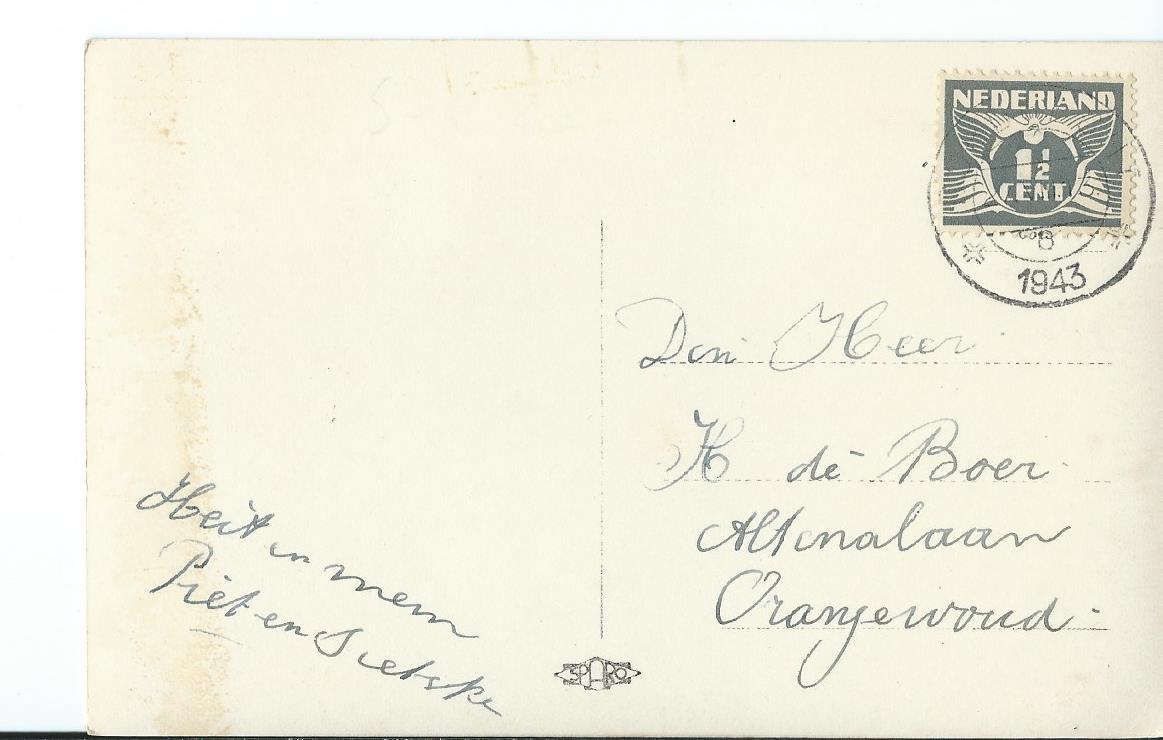 NEDERLAND
1½
CENT
8
1943
Den Heer
H de Boer
Altenalaan
Oranjewoud
Heit en mem
Piet en Sietske
SPARO